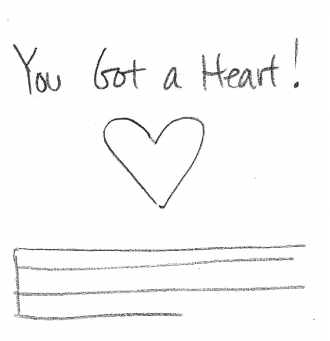 You Got a Heart!